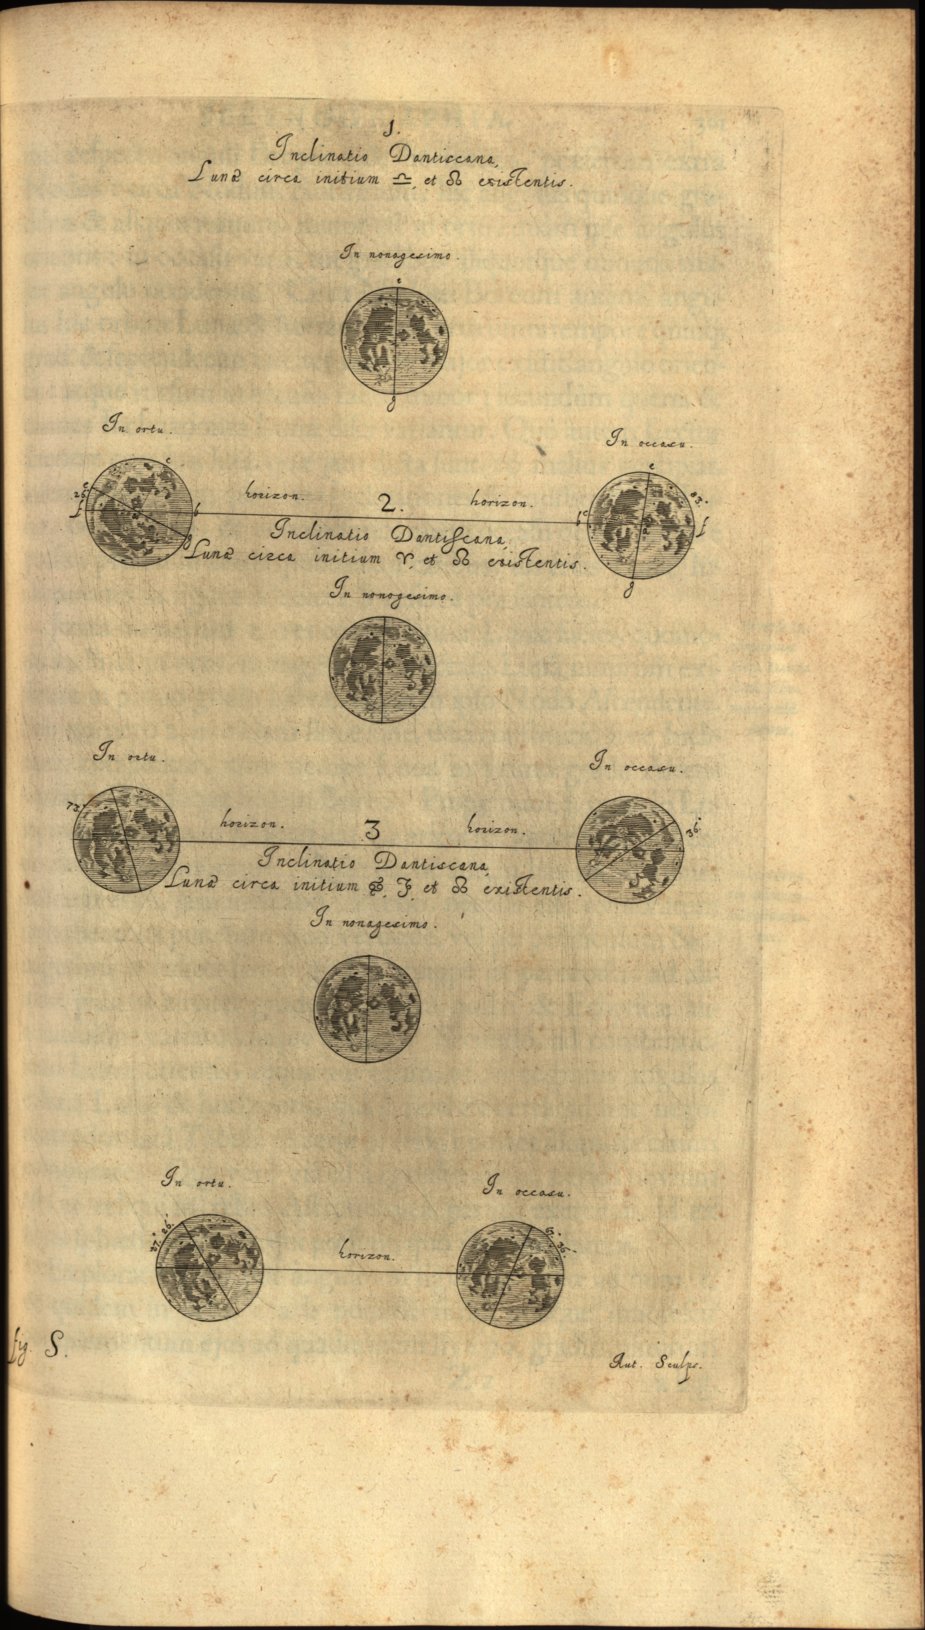 1.
Inclinatio Danticcana,
Lunæ circa initium ♎, et ☊ existentis.
In nonagesimo.
e
g
In ortu.
In occasu.
e
c
26°
f
b
g
horizon.
2.
horizon.
e
83°
c
b
f
g
Inclinatio Dantiscana,
Lunæ circa initium ♈, et ☊ existentis.
In nonogesimo.
In ortu.
In occasu.
73°
horizon.
3
horizon.
36°
Inclinatio Dantiscana,
Lunæ circa initium ♋, ♑, et ☊ existentis.
In nonagesimo.
In ortu.
In occasu.
horizon.
fig. S.
Aut. Sculps.